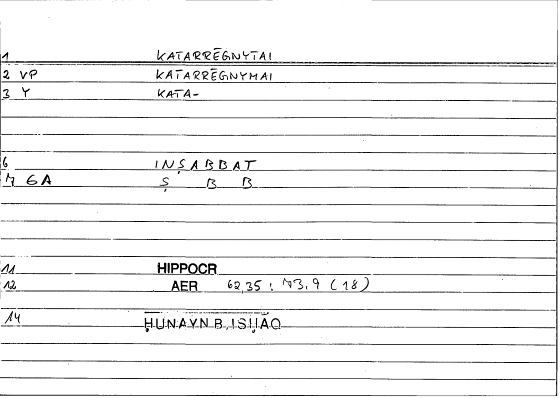 1 KATARRĒGNYTAI
2 VP KATARRĒGNYMAI
3 Y KATA-
6 INṢABBAT
7 GA Ṣ B B
11 HIPPOCR
12 AER 62,35 : 73,9 (18)
14 ḤUNAYN B. ISḤĀQ